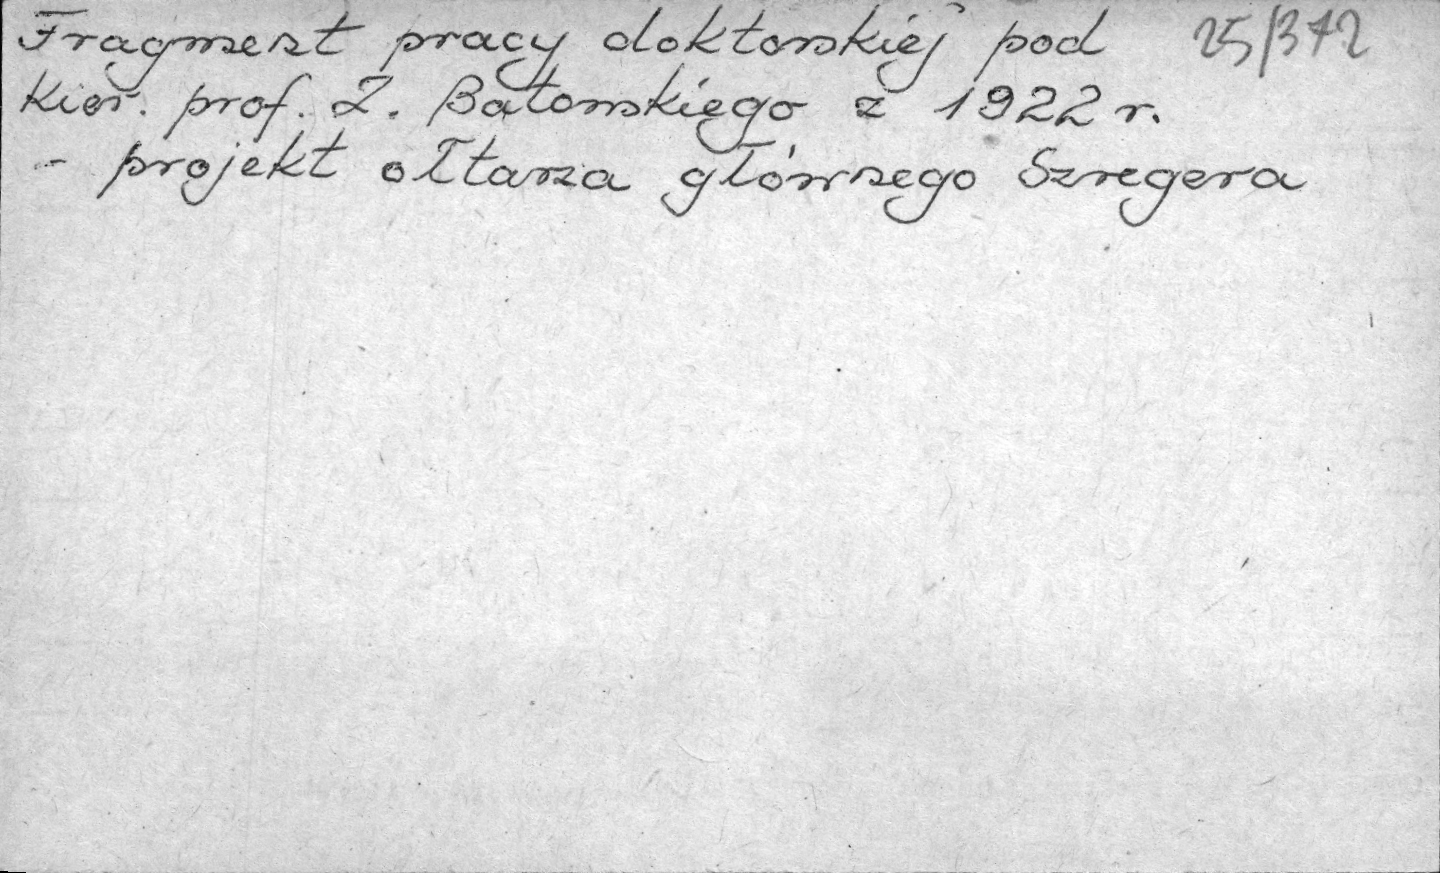 Fragment pracy doktorskiej pod 25/372
kier. prof. Z. Batowskiego z 1922 r.
- projekt ołtarza głównego Szregera